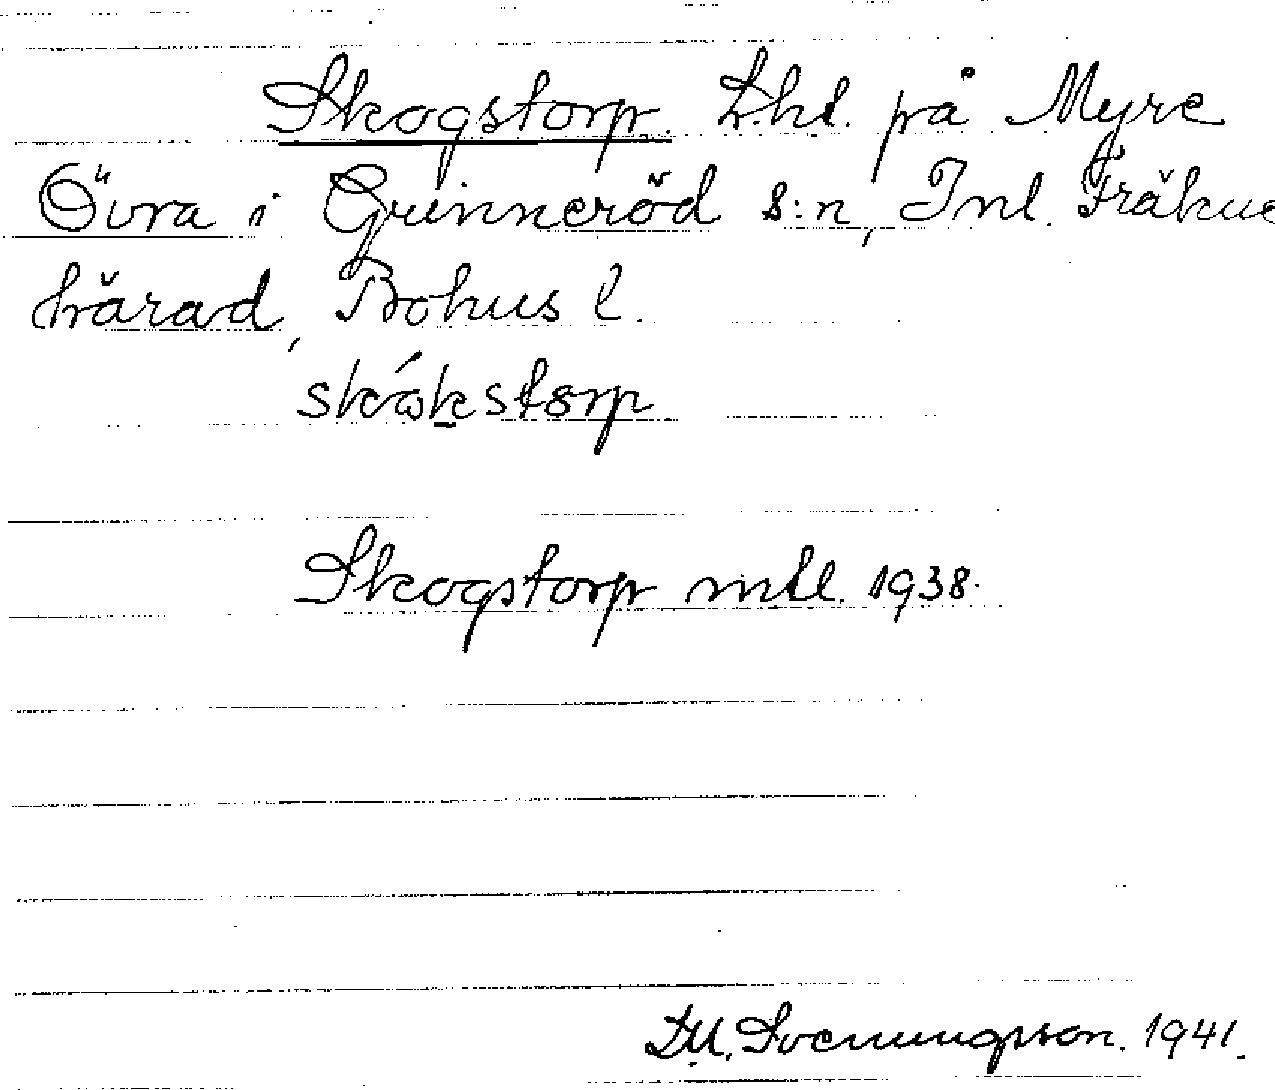 Skogstorp. Lht. på Myre
Övra i Grinneröd s:n, Inl. Fräkne
härad, Bohus l.
skókstorp
Skogstorp mtl. 1938.
Svenungsson. 1941.